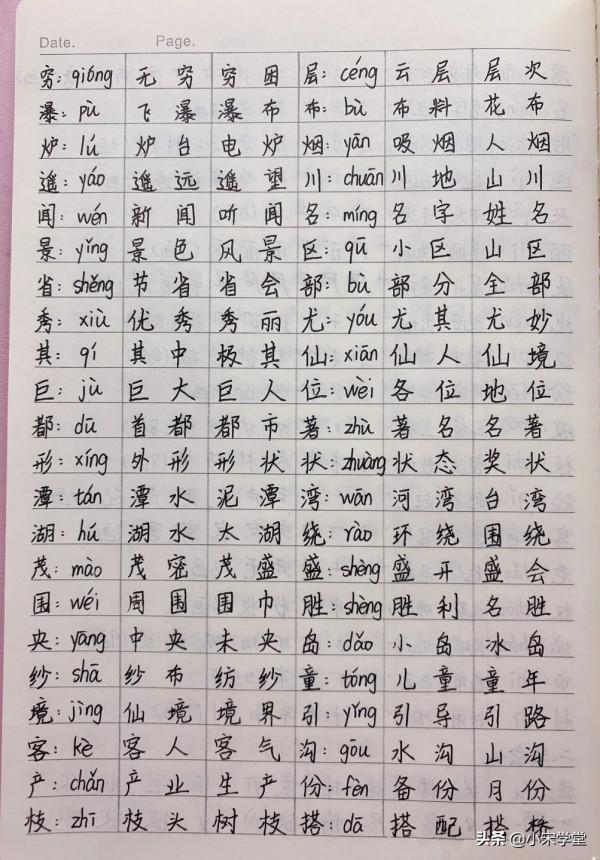 Date. Page.
穷: qióng 无穷 穷困 层: céng 云层 层次
瀑: pù 飞瀑 瀑布 布: bù 布料 花布
炉: lú 炉台 电炉 烟: yān 吸烟 人烟
遥: yáo 遥远 遥望 川: chuān 川地 山川
闻: wén 新闻 听闻 名: míng 名字 姓名
景: yǐng 景色 风景 区: qū 小区 山区
省: shěng 节省 省会 部: bù 部分 全部
秀: xiù 优秀 秀丽 尤: yóu 尤其 尤妙
其: qí 其中 极其 仙: xiān 仙人 仙境
巨: jù 巨大 巨人 位: wèi 各位 地位
都: dū 首都 都市 著: zhù 著名 名著
形: xíng 外形 形状 状: zhuàng 状态 奖状
潭: tán 潭水 泥潭 湾: wān 河湾 台湾
湖: hú 湖水 太湖 绕: rào 环绕 围绕
茂: mào 茂密 茂盛 盛: shèng 盛开 盛会
围: wéi 周围 围巾 胜: shèng 胜利 名胜
央: yāng 中央 未央 岛: dǎo 小岛 冰岛
纱: shā 纱布 纺纱 童: tóng 儿童 童年
境: jìng 仙境 境界 引: yǐng 引导 引路
客: kè 客人 客气 沟: gōu 水沟 山沟
产: chǎn 产业 生产 份: fèn 备份 月份
枝: zhī 枝头 树枝 搭: dā 搭配 搭桥
头条 @小宋学堂